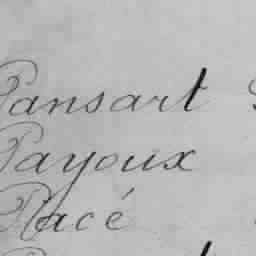 Pansart
Payoux
Placé